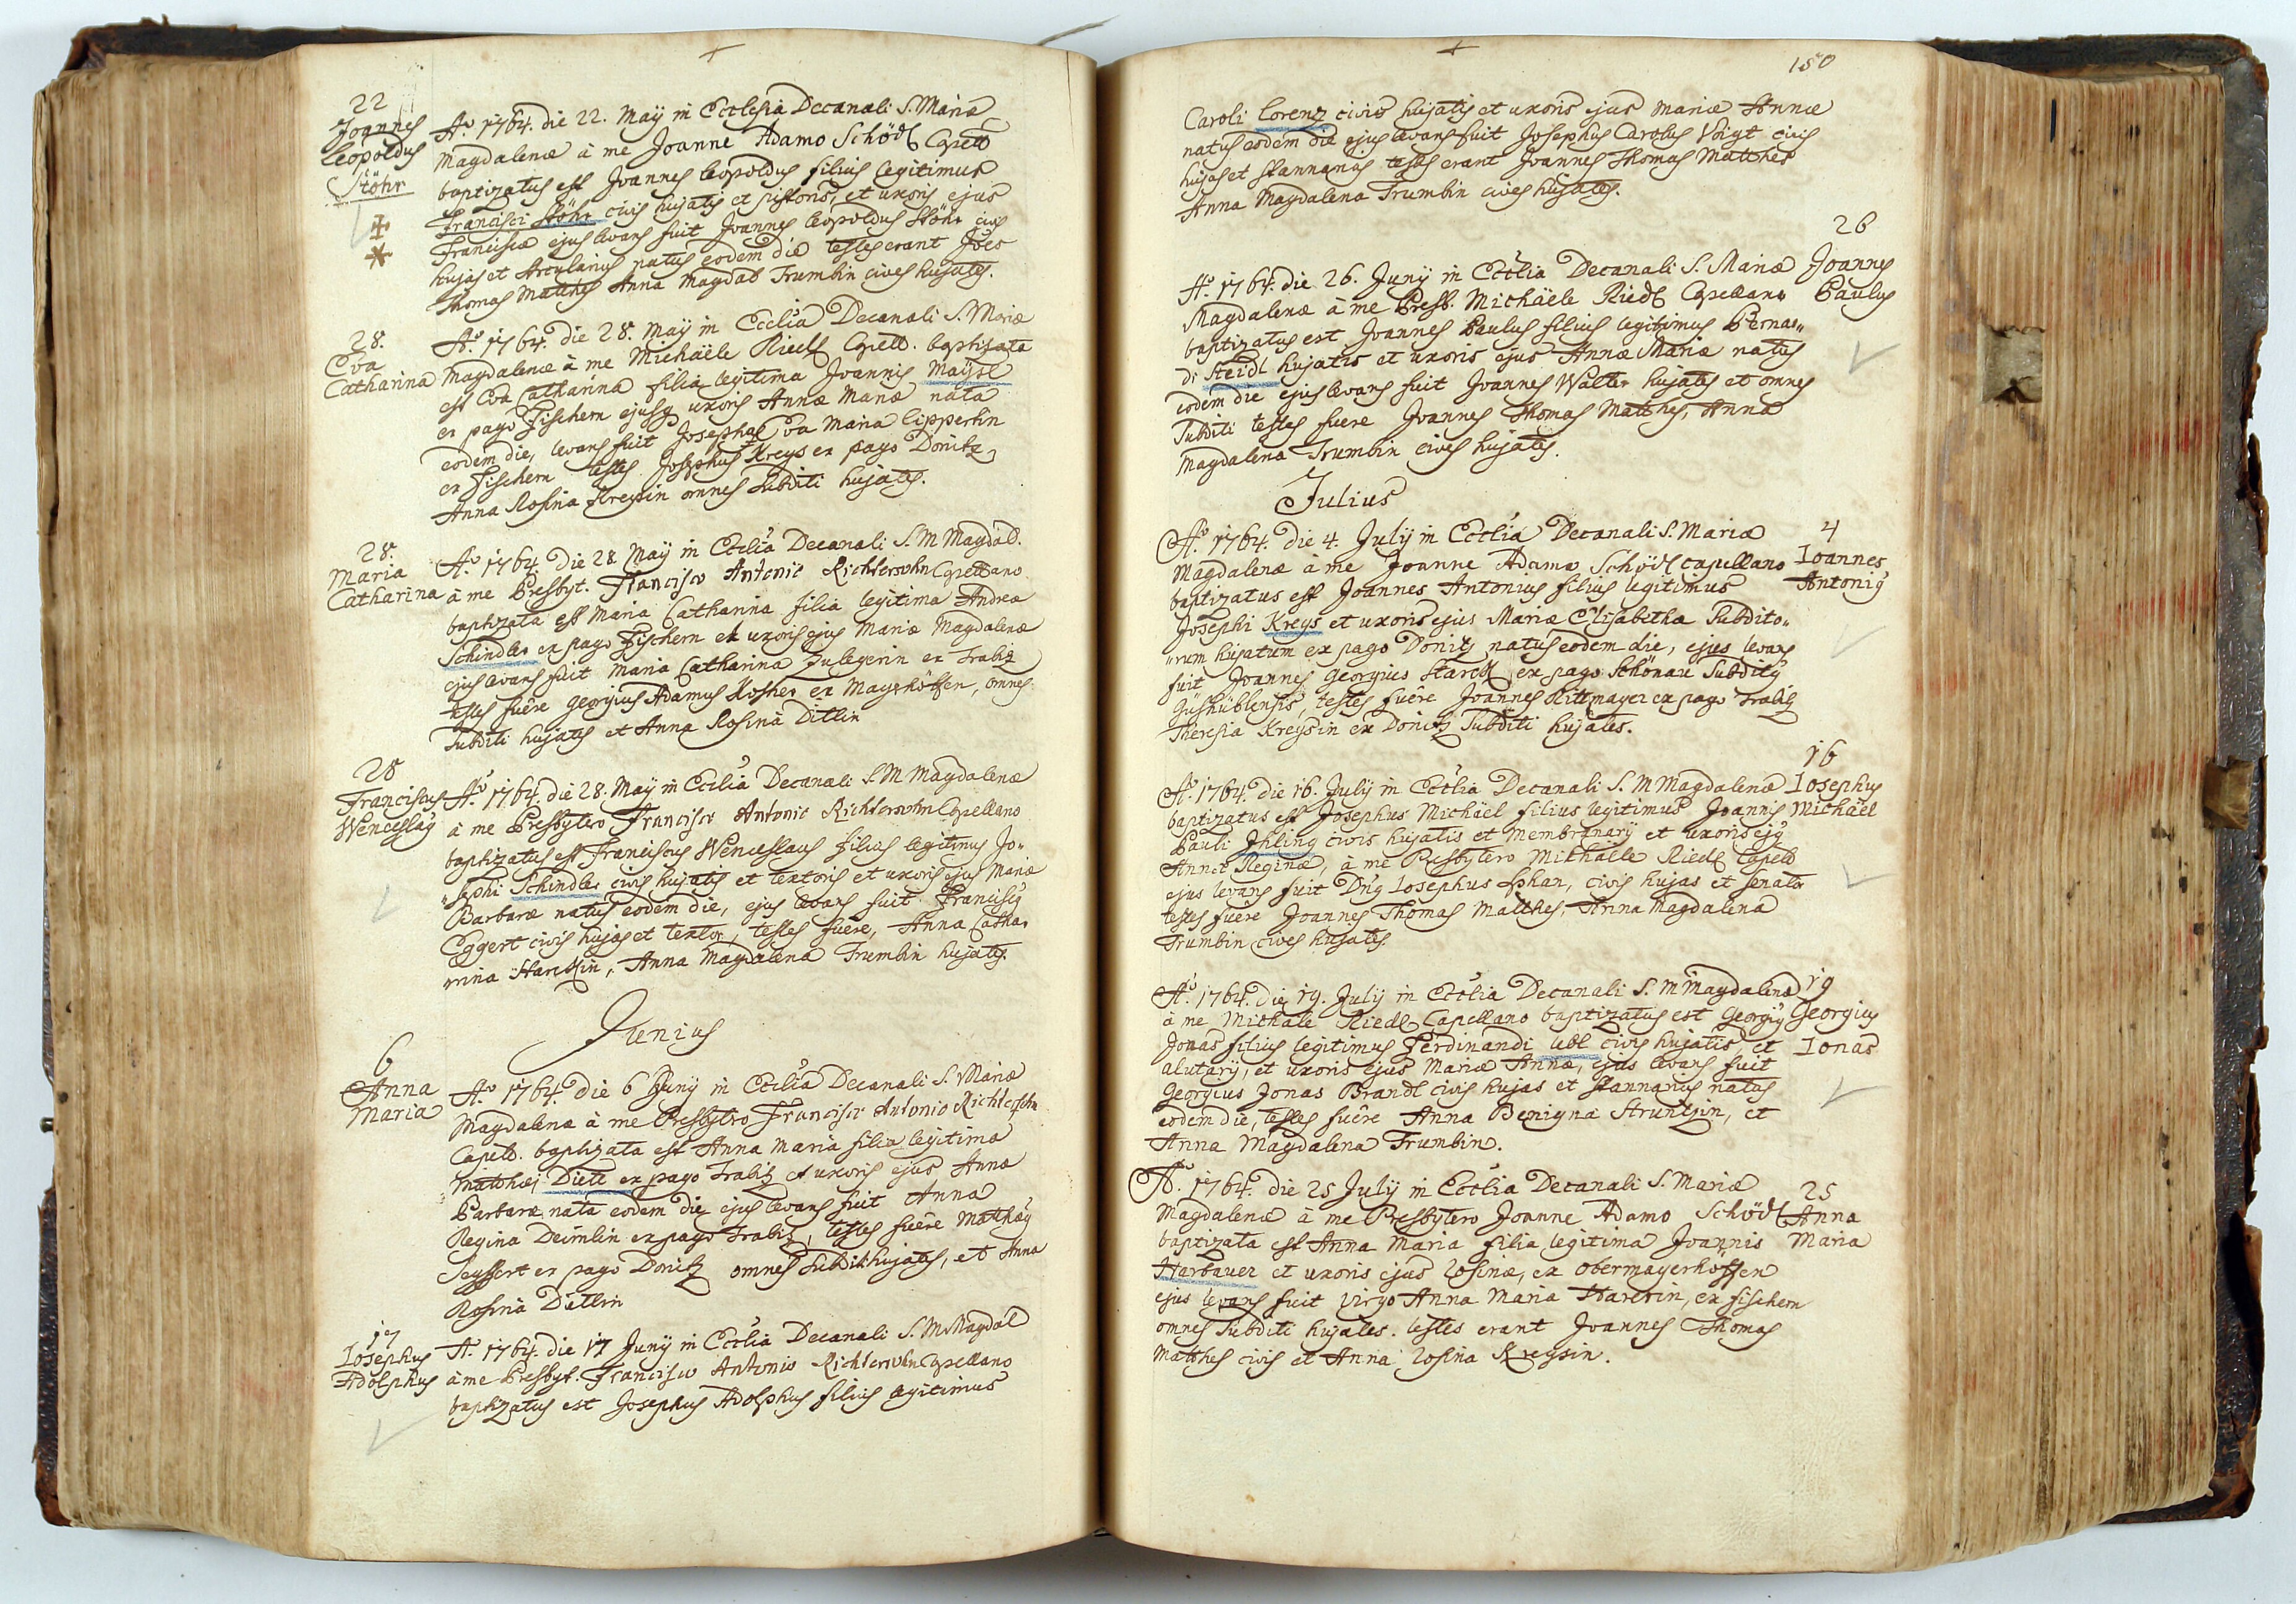 22
Joannes
Leopoldus
Stöhr
Ao. 1764. die 22. Maÿ in Ecclesia Decanali S. Mariæ
Magdalenæ à me Joanne Adamo Schödl Capell
baptizatus est Joannes Leopoldus filius legitimus
Francisci Stöhr civis hujatis et pistoris, et uxoris ejus
Franciscæ ejus levans fuit Joannes Leopoldus Stöhr civis
hujas et Arcularius natus eodem die testes erant Joes
Thomas Matthes Anna Magdal Trumbin cives hujates.
28.
Eva
Catharina
Ao. 1764. die 28. Maÿ in Ecclia Decanali S. Mariæ
Magdalenæ à me Michäele Riedl Capell. baptizata
est Eva Catharina filia legitima Joannis Maÿsl
ex pago Fischern ejusq uxoris Annæ Mariæ nata
eodem die, levans fuit Josephae Eva Maria Lippertin
ex Fischern testes Josephus Kreys ex pago Donitz,
Anna Rosina Kreysin omnes subditi hujates.
28.
Maria
Catharina
Ao. 1764. die 28 Maÿ in Ecclia Decanali S. M Magdal.
à me Presbyt. Francisco Antonio Richtersohn Capellano
baptizata est Maria Catharina filia legitima Andreæ
Schindler ex pago Fischern et uxoris ejus Mariæ Magdalenæ
ejus levans fuit Maria Catharina Zulegerin ex Trabitz
testes fuêre Georgius Adamus Kosher ex Mayerhöffen, omnes
subditi hujates et Anna Rosina Ditlin
28
Franciscus
Wenceslaÿ
Ao. 1764. die 28. Maÿ in Ecclia Decanali S. M Magdalenæ
à me Presbytero Francisco Antonio Richtersohn Capellano
baptizatus est Franciscus Wenceslaus filius legitimus Jo„
„sephi Schindler civis hujatis et textoris et uxoris ejus Mariæ
Barbaræ natus eodem die, ejus levans fuit Franciscÿ
Eggert civis hujas et textor, testes fuêre, Anna Catha„
rina Starckin, Anna Magdalena Trumbin hujates.
Junius
6
Anna
Maria
Ao. 1764. die 6 Junÿ in Ecclia Decanali S. Mariæ
Magdalenæ à me Presbytro Francisco Antonio Richtersohn
Capell. baptizata est Anna Maria filia legitima
Matthæi Dietl ex pago Trabitz et uxoris ejus Annæ
Barbaræ, nata eodem die ejus levans fuit Anna
Regina Deimlin ex pago Trabitz, testes fuêre Matthæÿ
Seyffert ex pago Donitz omnes subditi hujates, et Anna
Rosina Dietlin
17
Iosephus
Adolphus
Ao. 1764. die 17 Junÿ in Ecclia Decanali S. M Magdal
à me Presbyt. Francisco Antonio Richtersohn Capellano
baptizatus est Josephus Adolphus filius legitimus
180
Caroli Lorenz civis hujatis et uxoris ejus Mariæ Annæ
natus eodem die ejus levans fuit Josephus Carolus Voigt civis
hujas et stannarius testes erant Joannes Thomas Matthes
Anna Magdalena Trumbin cives hujates.
26
Joannes
Paulus
Ao. 1764. die 26. Junÿ in Ecclia Decanali S. Mariæ
Magdalenæ à me Presb. Michäele Riedl Capellano
baptizatus est Joannes Paulus filius legitimus Bernar„
di Steidl hujatis et uxoris ejus Annæ Mariæ natus
eodem die ejus levans fuit Joannes Walter hujates et omnes
subditi testes fuere Joannes Thomas Matthes, Anna
Magdalena Trumbin cives hujates.
Julius
4
Ioannes
Antoniÿ
Ao. 1764. die 4. Julÿ in Ecclia Decanali S. Mariæ
Magdalenæ à me Joanne Adamo Schödl Capellano
baptizatus est Joannes Antonius filius legitimus
Josephi Kreys et uxoris ejus Mariæ Elisabethæ subdito„
„rum hujatum ex pago Donitz natus eodem die, ejus levans
fuit Joannes Georgius Starck ex pago Schönau subditÿ
Gushüblensis, testes fuêre Joannes Rittmayer ex pago Trabitz
Theresia Kreysin ex Donitz subditi hujates.
16
Iosephus
Michäel
Ao. 1764. die 16. Julÿ in Ecclia Decanali S. M Magdalenæ
baptizatus est Josephus Michäel filius legitimus Joannis
Pauli Ihling civis hujatis et membranarÿ et uxoris ejÿ
Annæ Reginæ, à me Presbytero Michäele Riedl Capell
ejus levans fuit Dnÿ Iosephus Lphan, civis hujas et senator
testes fuêre Joannes Thomas Matthes, Anna Magdalena
Trumbin cives hujates.
19
Georgius
Ionas
Ao. 1764. die 19. Julÿ in Ecclia Decanali S. M Magdalenæ
à me Michäle Riedl Capellano baptizatus est Georgiÿ
Jonas filius legitimus Ferdinandi Uebl civis hujatis et
alutarÿ, et uxoris ejus Mariæ Annæ, ejus levans fuit
Georgius Jonas Brandl civis hujas et stannarius natus
eodem die, testes fuêre Anna Benigna Struntzin, et
Anna Magdalena Trumbin.
25
Anna
Maria
Ao. 1764. die 25 Julÿ in Ecclia Decanali S. Mariæ
Magdalenæ à me Presbytero Joanne Adamo Schödl
baptizata est Anna Maria filia legitima Joannis
Harbauer et uxoris ejus Rosinæ, ex Obermayerhöffen
ejus levans fuit virgo Anna Maria Harerin, ex Fischern
omnes subditi hujates. testes erant Joannes Thomas
Matthes civis et Anna Rosina Kreysin.